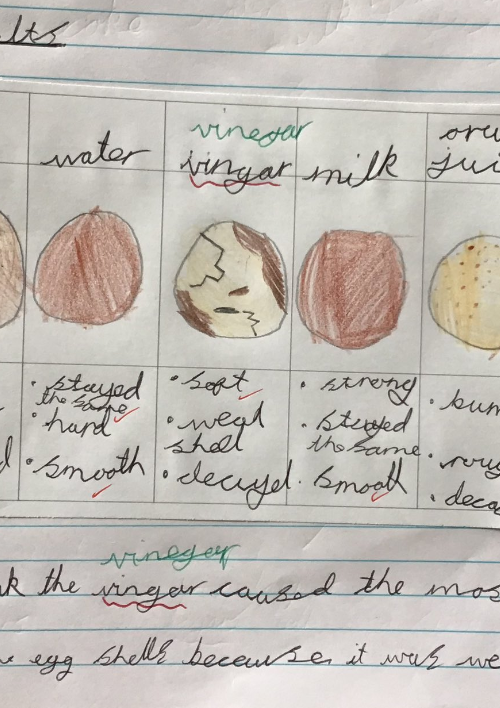 lts
water
vinegar
vingar
milk
ora
jui
• stayed
the same
• hard
• smooth
• soft
• weak
shell
• decayed
• strong
• stayed
the same
• smooth
• bum
• roug
• deca
vinegar
k the vingar caused the mos
egg shells because it was we